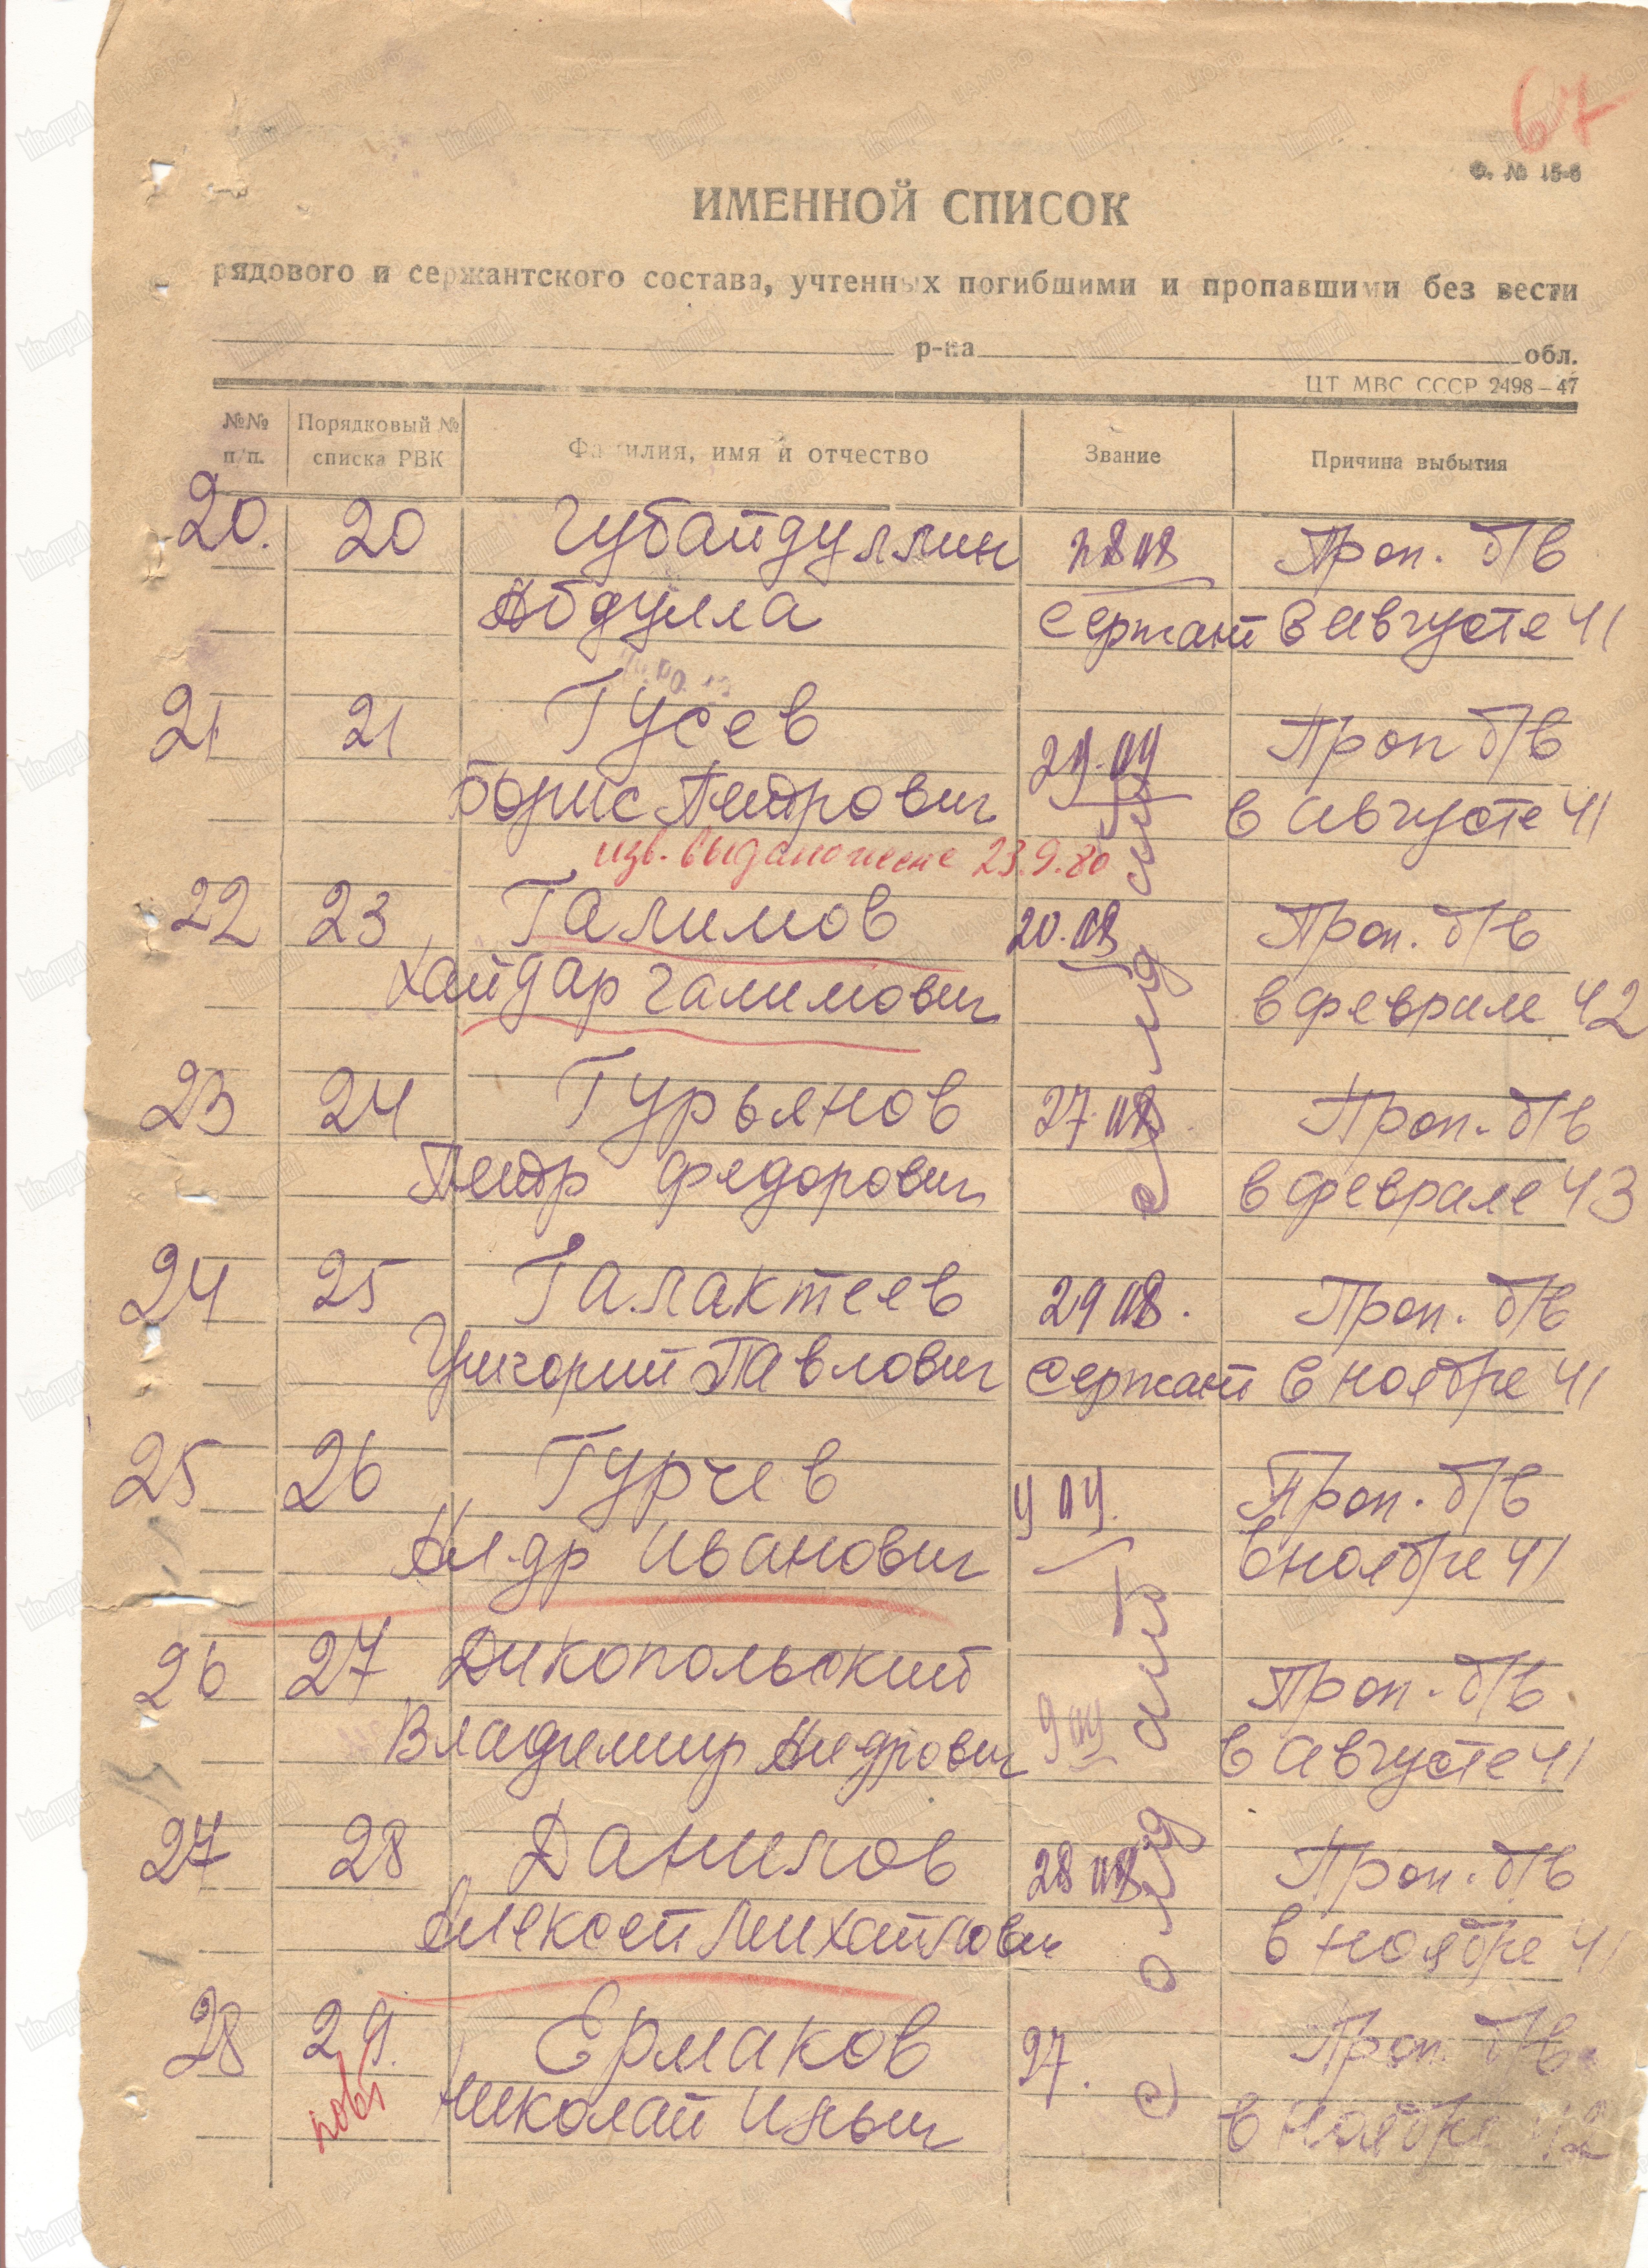 67
Ф. № 15-б
ИМЕННОЙ СПИСОК
рядового и сержантского состава, учтенных погибшими и пропавшими без вести
р-на обл.
ЦТ МВС СССР 2498–47
№№ п/п. Порядковый № списка РВК Фамилия, имя и отчество Звание Причина выбытия
20. 20 Губайдуллин Проп. б/в
Абдулла сержант В августе 41
21 21 Гусев Проп б/в
Борис Петрович в августе 41
изв. выдано жене 23.9.80
22 23 Галимов Проп. б/в
Хайдар Галимович в феврале 42
23 24 Гурьянов Проп. б/в
Петр Федорович в феврале 43
24 25 Галактеев Проп. б/в
Григорий Павлович сержант в ноябре 41
25 26 Гурчев Проп. б/в
Ал-др Иванович в ноябре 41
26 27 Дикопольский Проп. б/в
Владимир в августе 41
27 28 Данилов Проп. б/в
Алексей Михайлович в ноябре 41
28 29. Ермаков 27. Проп. б/в
Николай Ильич в ноябре 42
солдат